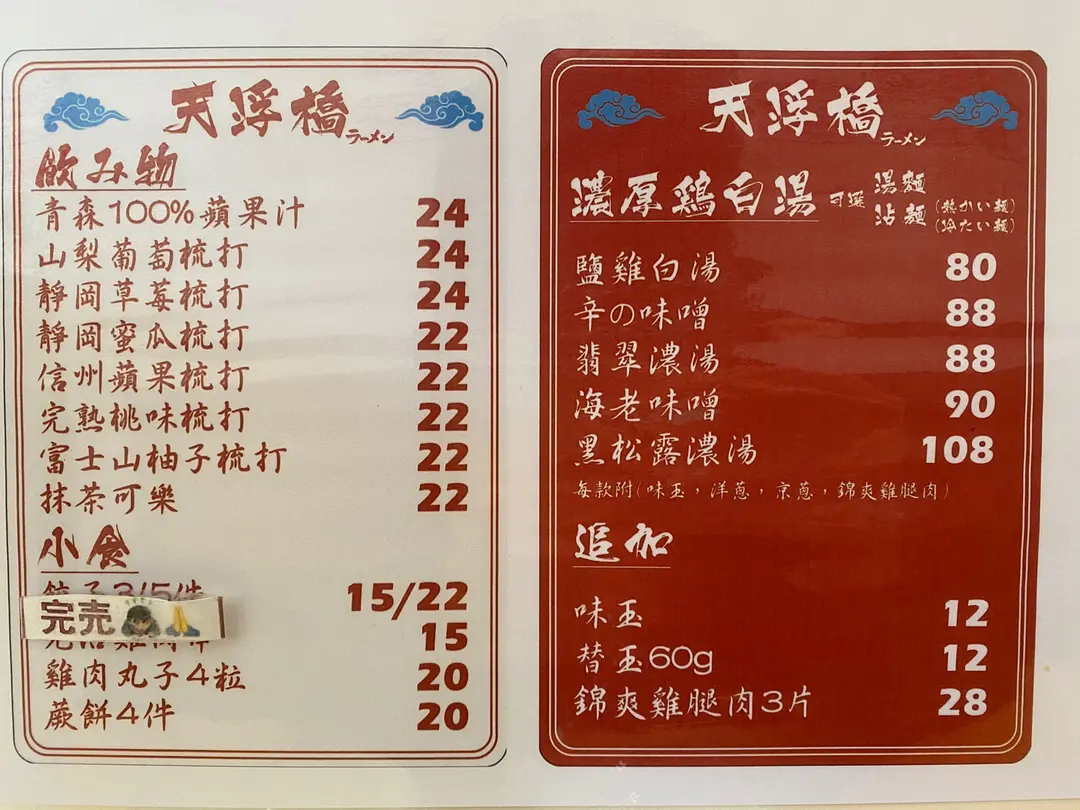 天浮橋
ラーメン
飲み物
青森100%蘋果汁 24
山梨葡萄梳打 24
靜岡草莓梳打 24
靜岡蜜瓜梳打 22
信州蘋果梳打 22
完熟桃味梳打 22
富士山柚子梳打 22
抹茶可樂 22
小食
餃子3/5件 15/22
完売
15
雞肉丸子4粒 20
蕨餅4件 20
天浮橋
ラーメン
濃厚鶏白湯 可選 湯麵(熱かい麵)
沾麵(冷たい麵)
鹽雞白湯 80
辛の味噌 88
翡翠濃湯 88
海老味噌 90
黑松露濃湯 108
每款附(味玉，洋蔥，京蔥，錦爽雞腿肉)
追加
味玉 12
替玉60g 12
錦爽雞腿肉3片 28